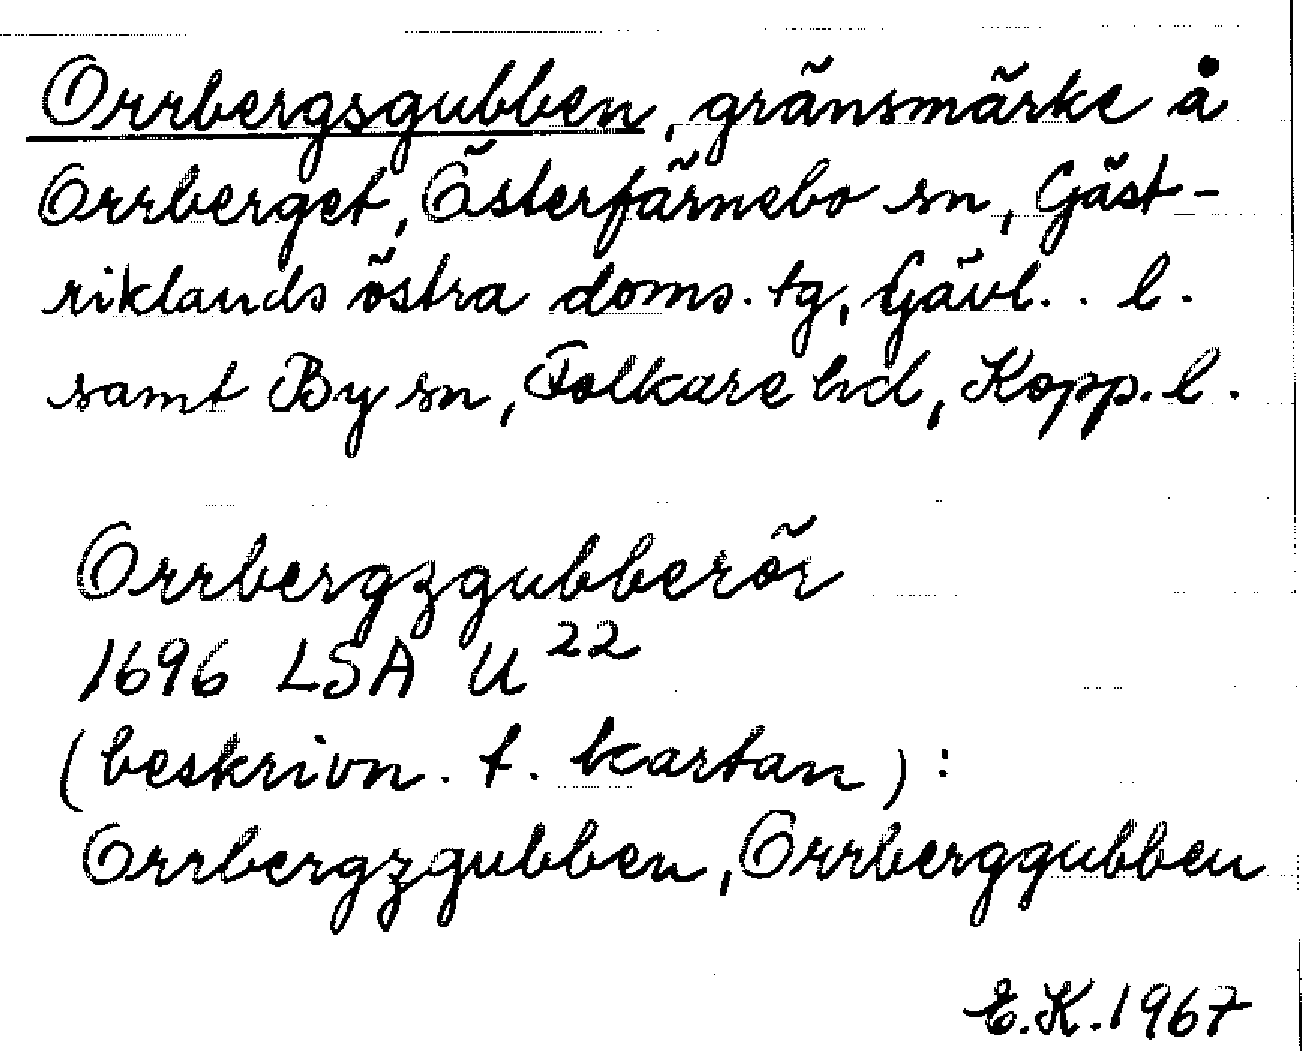 Orrbergsgubben, gränsmärke å
Orrberget, Österfärnebo sn, Gäst-
riklands östra doms. tg, Gävl. . l.
samt By sn, Folkare hd, Kopp. l.
Orrbergzgubberör
1696 LSA U 22
(beskrivn. t. kartan):
Orrbergzgubben, Orrberggubben
E.K.1967